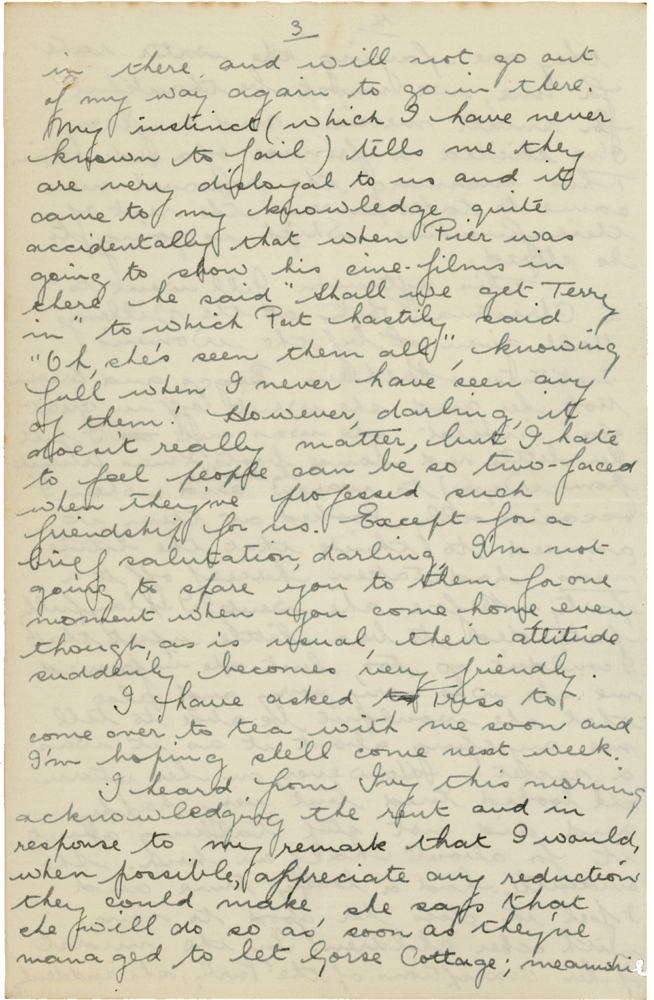 3
in there, and will not go out
of my way again to go in there.
My instinct (which I have never
known to fail) tells me they
are very disloyal to us and it
came to my knowledge quite
accidentally that when Pier was
going to show his cine-films in
there he said "Shall we get Terry
in" to which Pat hastily said
"Oh, she's seen them all", knowing
full when I never have seen any
of them! However, darling, it
doesn't really matter, but I hate
to feel people can be so two-faced
when they've professed such
friendship for us. Except for a
brief salutation, darling, I'm not
going to spare you to them for one
moment when you come home, even
though, as is usual, their attitude
suddenly becomes very friendly.
I have asked to Triss to
come over to tea with me soon and
I'm hoping she'll come next week.
I heard from Ivy this morning
acknowledging the rent and in
response to my remark that I would,
when possible, appreciate any reduction
they could make she says that
she will do so as soon as they've
managed to let Gorse Cottage;